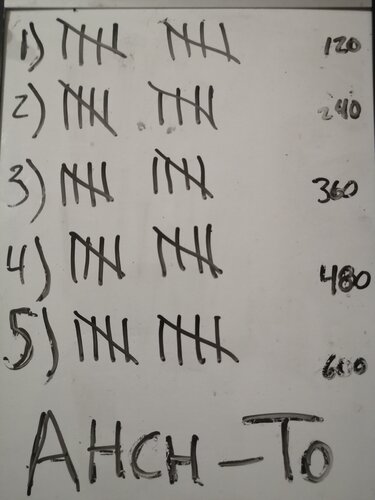 1) 𝍸 𝍸 120
2) 𝍸 𝍸 240
3) 𝍸 𝍸 360
4) 𝍸 𝍸 480
5) 𝍸 𝍸 600
AHCH-TO